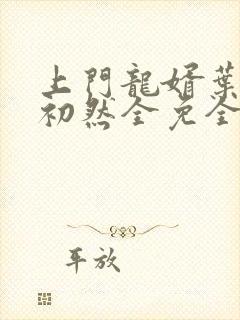 上門龍婿葉
初然全免全
平放